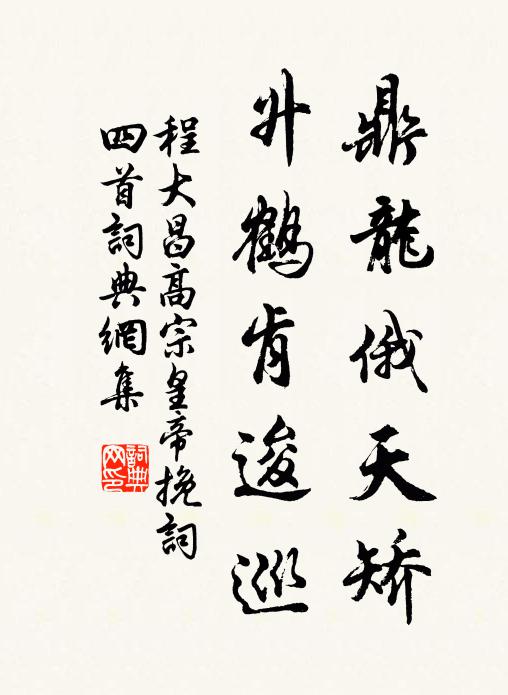 鼎龍俄天矯
升鶴肯逡巡
程大昌高宗皇帝挽詞
四首詞典網集
詞典网印